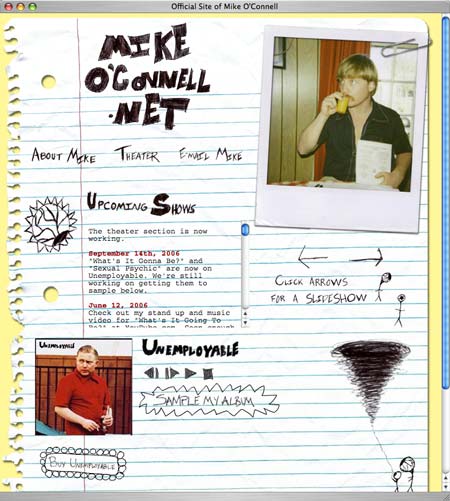 Official Site of Mike O'Connell
MIKE
O'CONNELL
.NET
ABOUT MIKE THEATER E-MAIL MIKE
UPCOMING SHOWS
The theater section is now
working.
September 14th, 2006
"What's It Gonna Be?" and
"Sexual Psychic" are now on
Unemployable. We're still
working on getting them to
sample below.
June 12, 2006
Check out my stand up and music
video for "What's It Going To
Be?" at YouTube.com. Soon enough
CLICK ARROWS
FOR A SLIDESHOW
UNEMPLOYABLE
UNEMPLOYABLE
SAMPLE MY ALBUM
BUY UNEMPLOYABLE